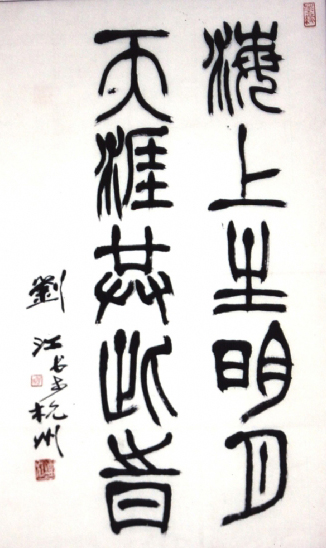 海上生明月
天涯共此时
劉江书于杭州